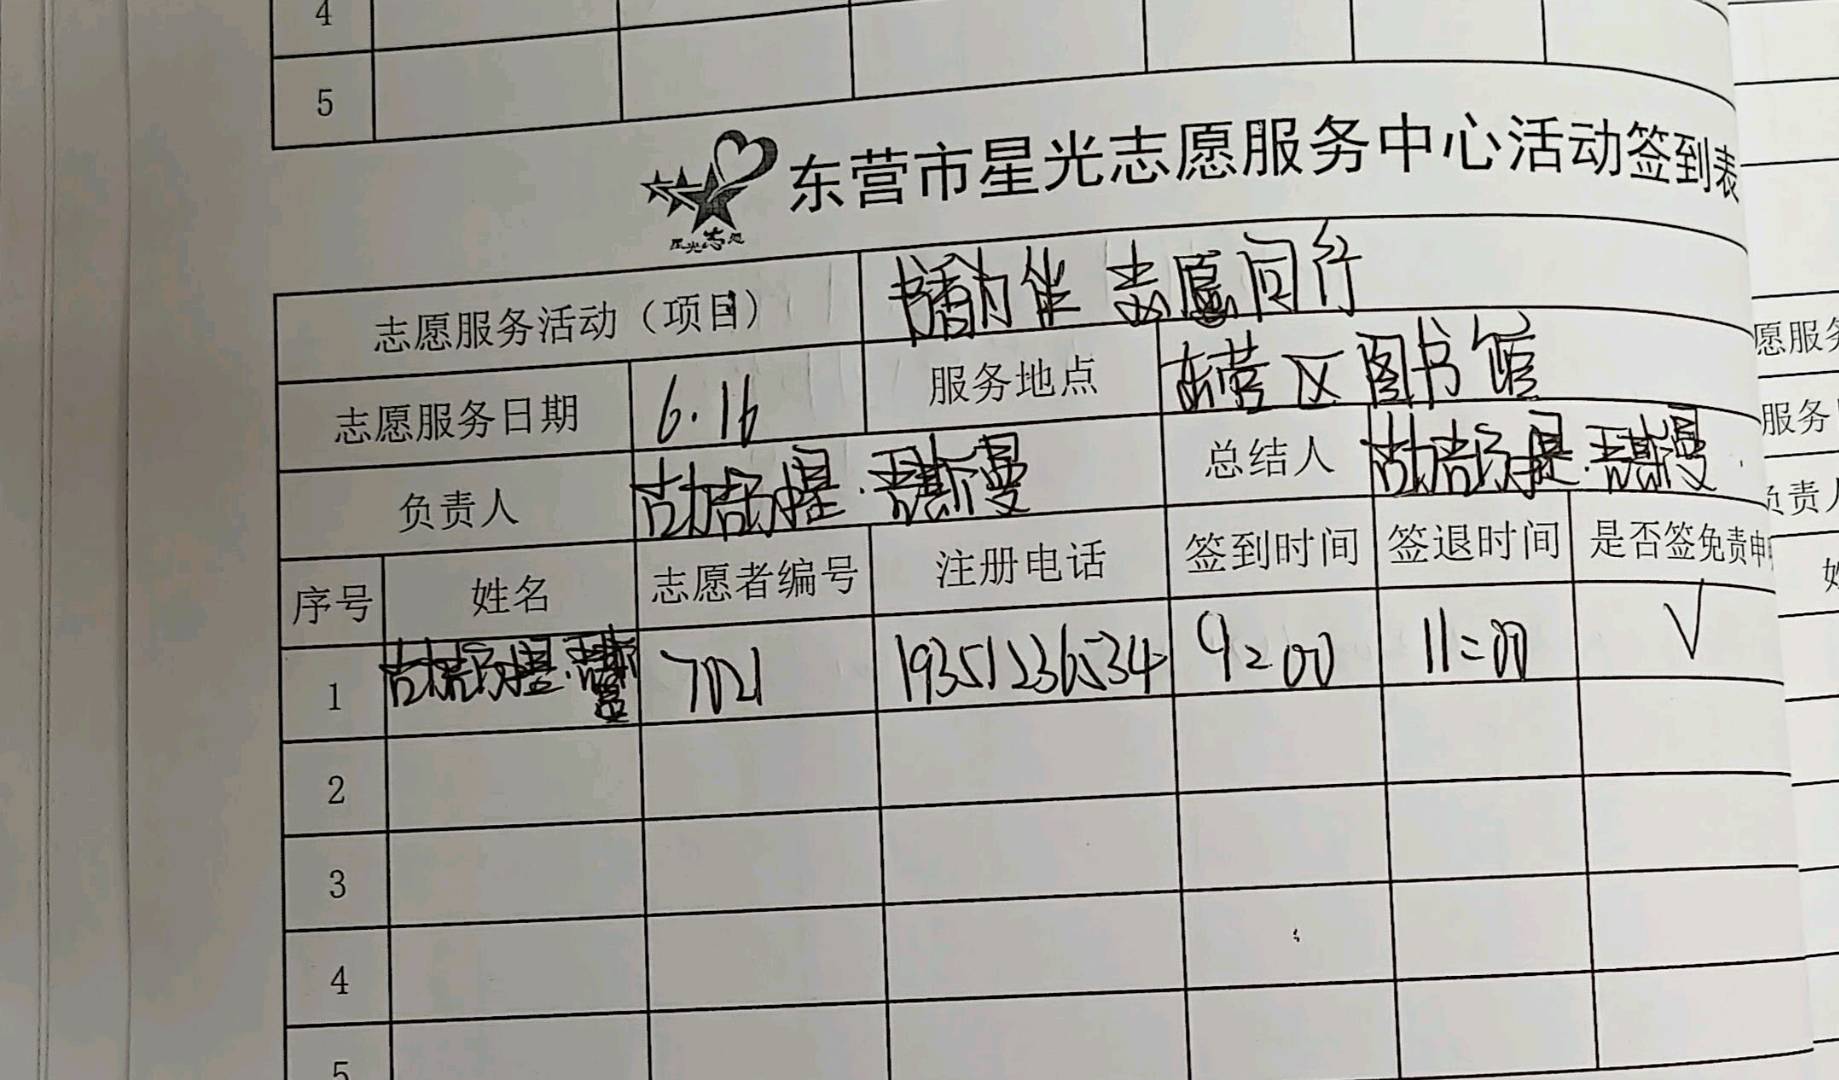 4
5
星光志愿
东营市星光志愿服务中心活动签到表
志愿服务活动（项目） 书香为伴 志愿同行
志愿服务日期 6.16 服务地点 东营区图书馆
负责人 吾斯曼 总结人 吾斯曼
序号 姓名 志愿者编号 注册电话 签到时间 签退时间 是否签免责申
1 7021 19351236534 9:00 11:00 √
2
3
4
5
愿服务
服务
负责人
姓